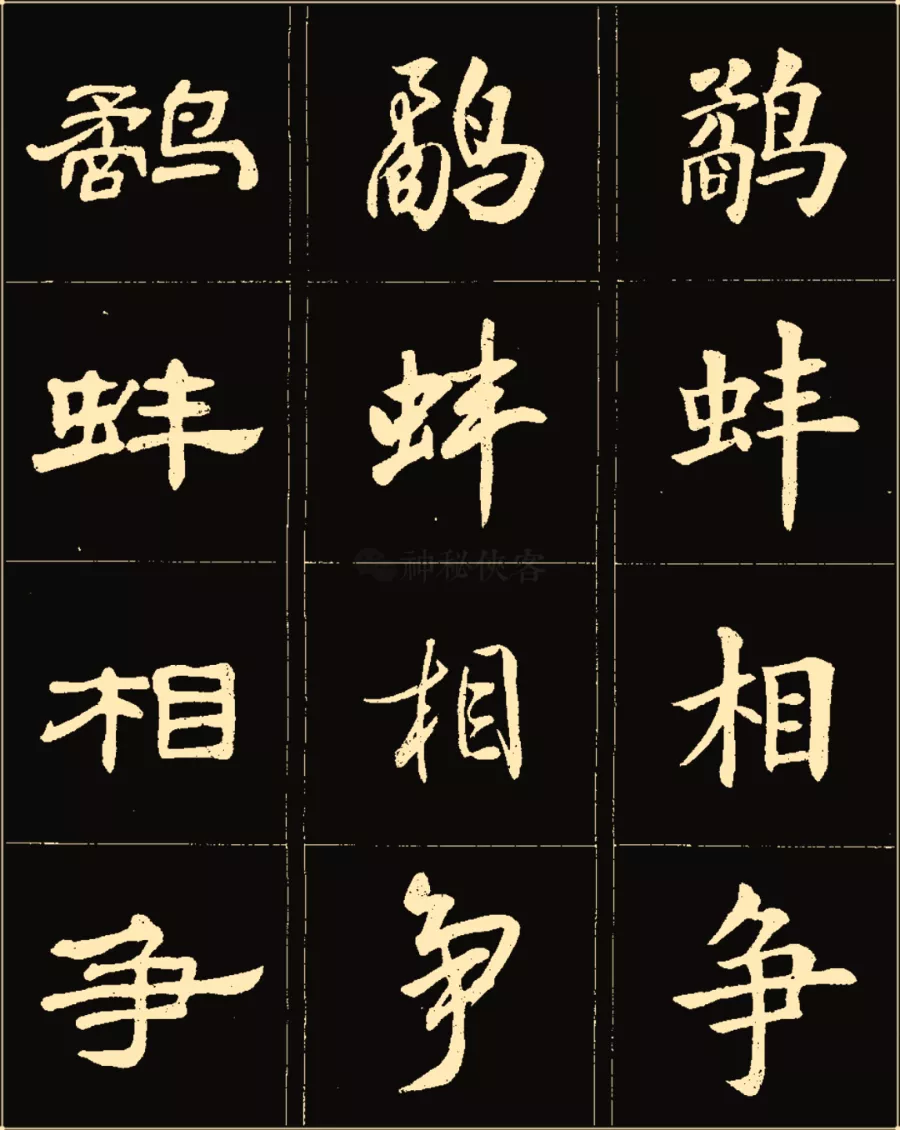 鹬 鹬 鹬
蚌 蚌 蚌
相 相 相
争 争 争
神秘侠客